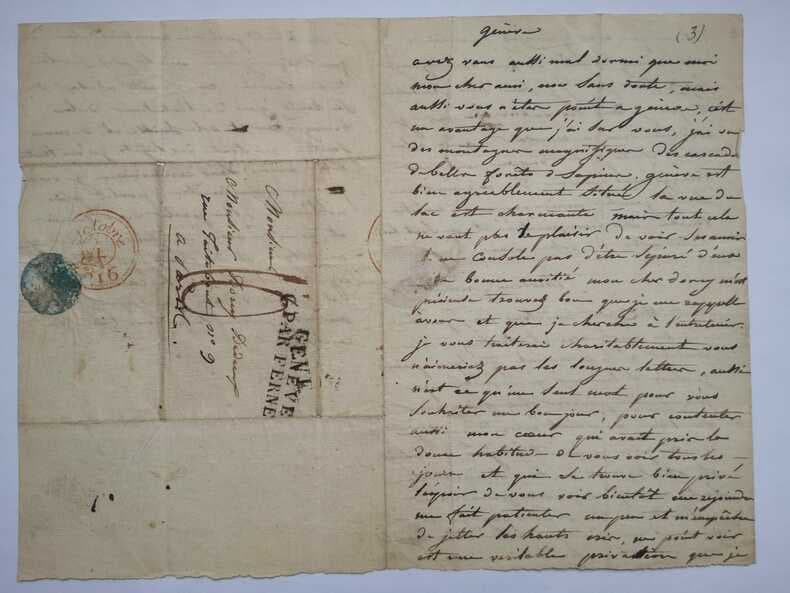 genève
(3)
avez vous aussi mal dormi que moi
mon cher ami, non sans doute, mais
aussi vous n'êtes point a genève, c'est
un avantage que j'ai sur vous, j'ai vu
des montagnes magnifiques des cascades
de belles forêts de sapins. genève est
bien agréablement située la vue du
lac est charmante mais tout cela
ne vaut pas le plaisir de voir ses amis
et ne console pas d'être séparé d'eux
bonne amitié mon cher m'est
précieuse trouvez bon que je me rappelle
a vous et que je cherche à l'entretenir.
je vous traiterai charitablement vous
n'aimeriez pas les longues lettres, aussi
n'est ce qu'un seul mot pour vous
souhaiter un bonjour, pour contenter
aussi mon cœur qui avait pris la
douce habitude de vous voir tous les
jours et qui se trouve bien privé
l'espoir de vous voir bientôt me rejoindre
me fait patienter un peu et m'empêche
de jetter les hauts cris, ne point voir
est une veritable privation que je
Monsieur
Monsieur
rue n° 9
a Paris.
GENEVE
PAR FERNE
1816